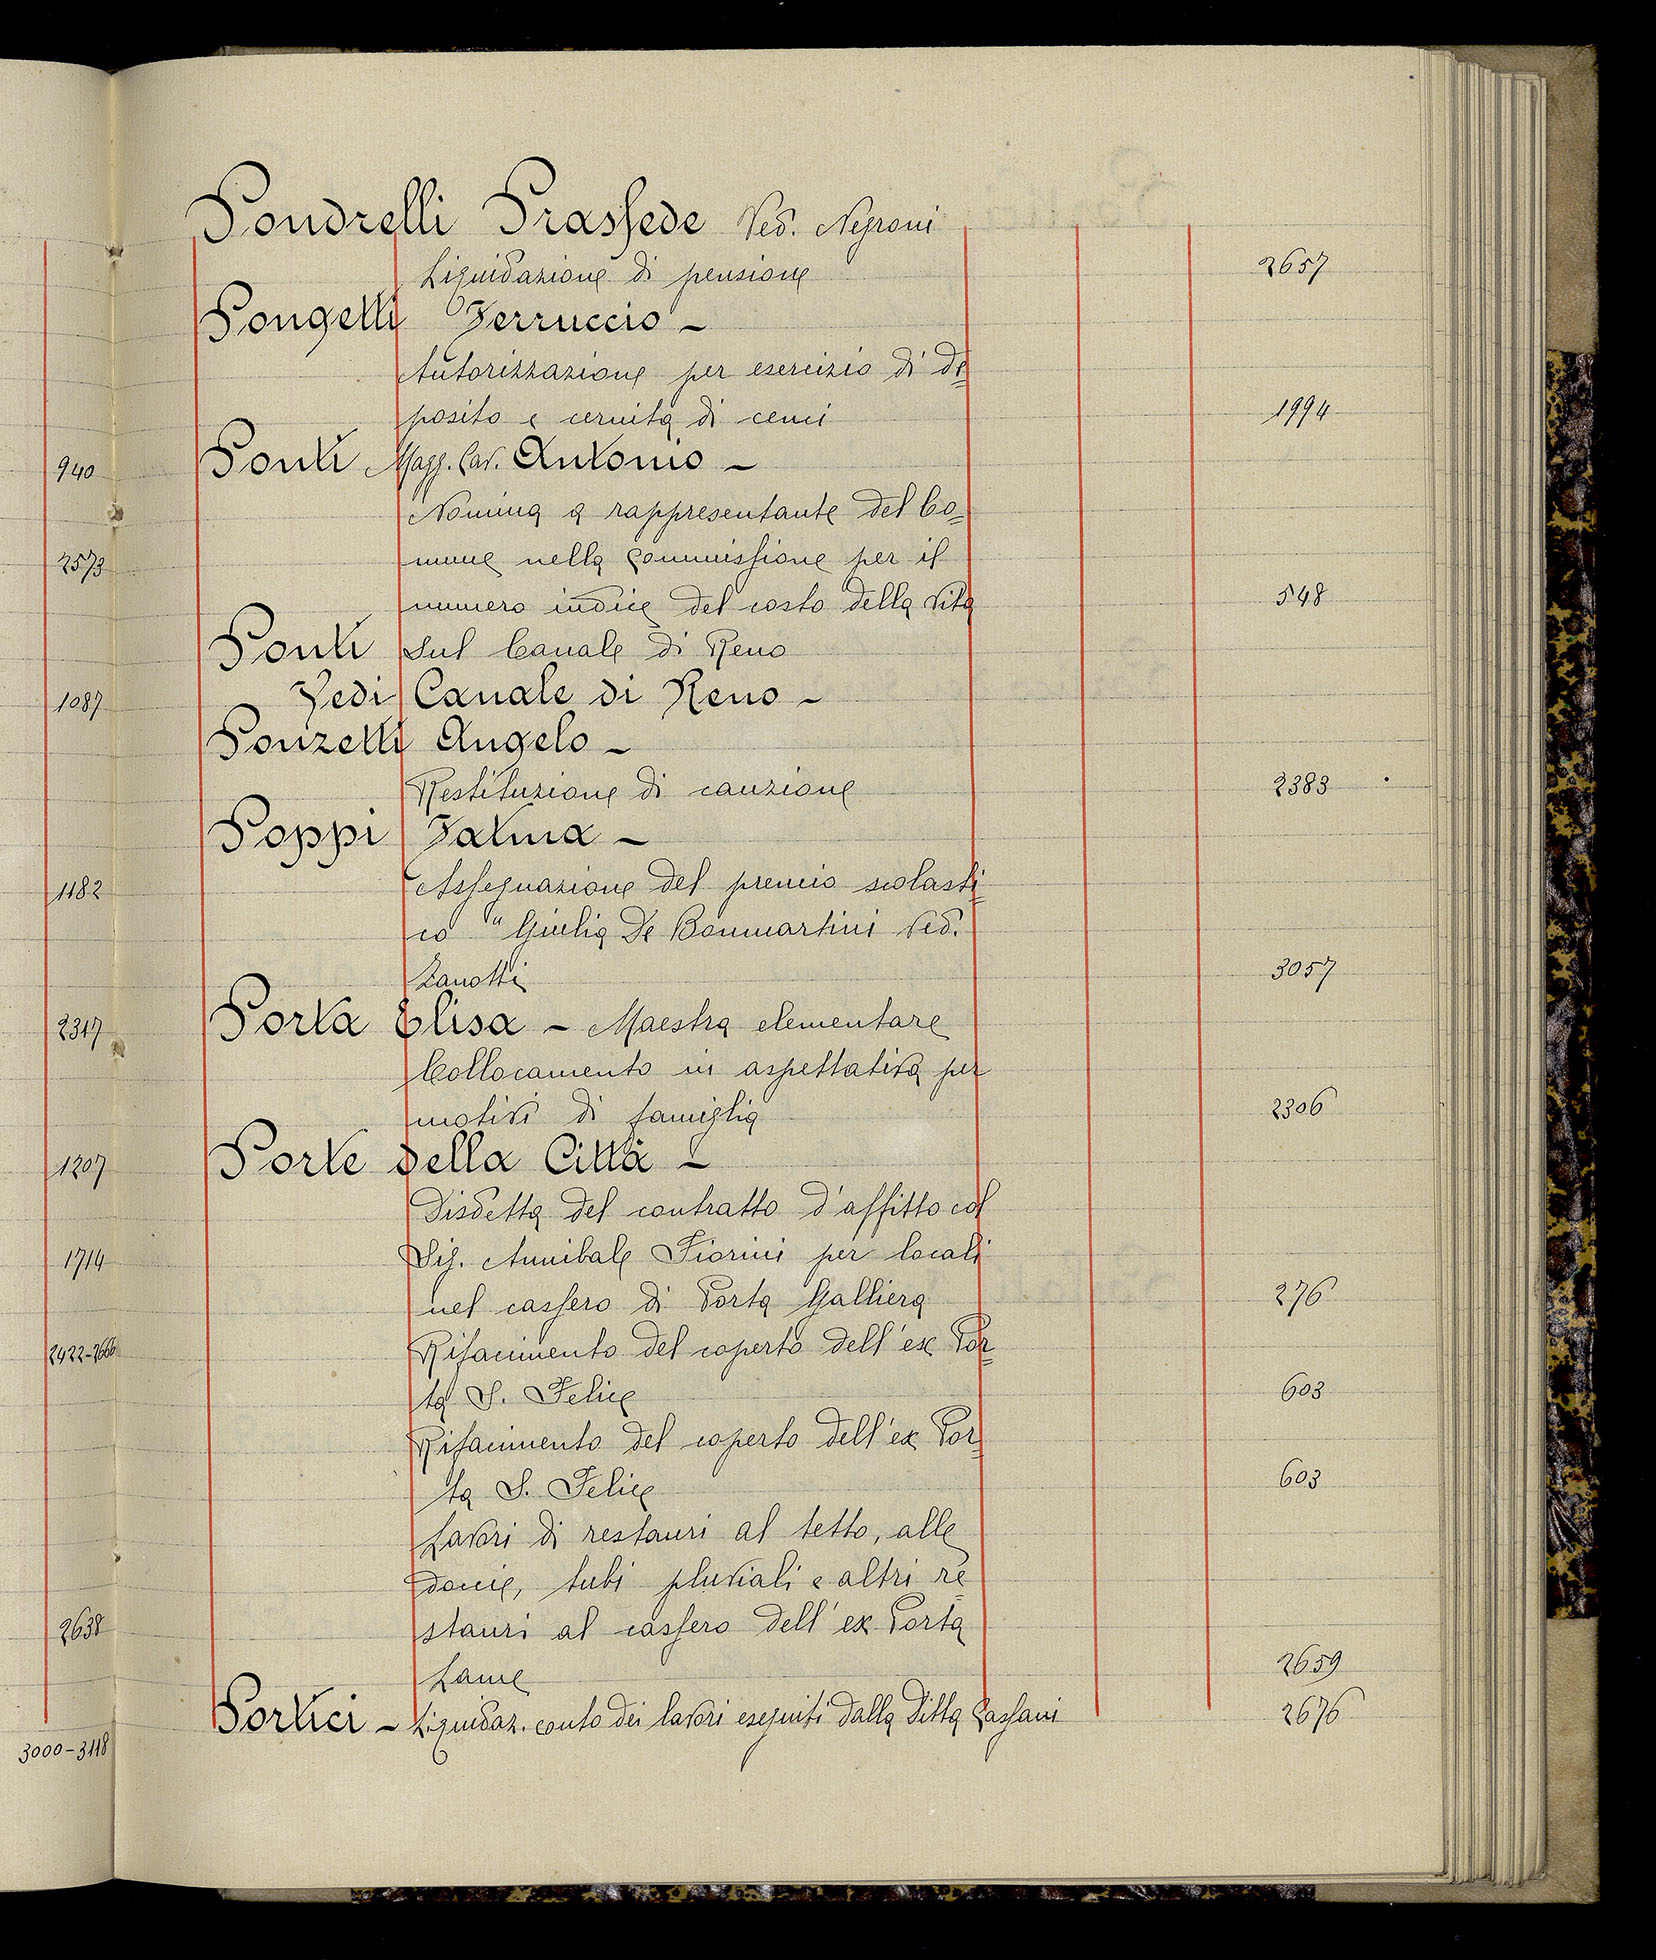 940
2573
1087
1182
2317
1207
1714
2422-2666
2638
3000-3118
Pondrelli Prassede Ved. Negroni
Liquidazione di pensione 2657
Pongetti Ferruccio -
Autorizzazione per esercizio di de
posito e cernita di cenci 1994
Ponti Magg. Cav. Antonio -
Nomina a rappresentante del Co=
mune nella Commissione per il
numero indice del costo della vita 548
Ponti sul Canale di Reno
Vedi Canale di Reno -
Ponzetti Angelo -
Restituzione di cauzione 2383
Poppi Fatma -
Assegnazione del premio scolasti=
co "Giulia De Bonmartini Ved.
Zanotti 3057
Porta Elisa - Maestra elementare
Collocamento in aspettativa per
motivi di famiglia 2306
Porte della Città -
Disdetta del contratto d'affitto col
Sig. Annibale Fiorini per locali
nel cassero di Porta Galliera 276
Rifacimento del coperto dell'ex Por=
ta S. Felice 603
Rifacimento del coperto dell'ex Por=
ta S. Felice 603
Lavori di restauri al tetto, alle
docce, tubi pluviali e altri re=
stauri al cassero dell'ex Porta
Lame 2659
Portici - Liquidaz. conto dei lavori eseguiti dalla Ditta Cassani 2676